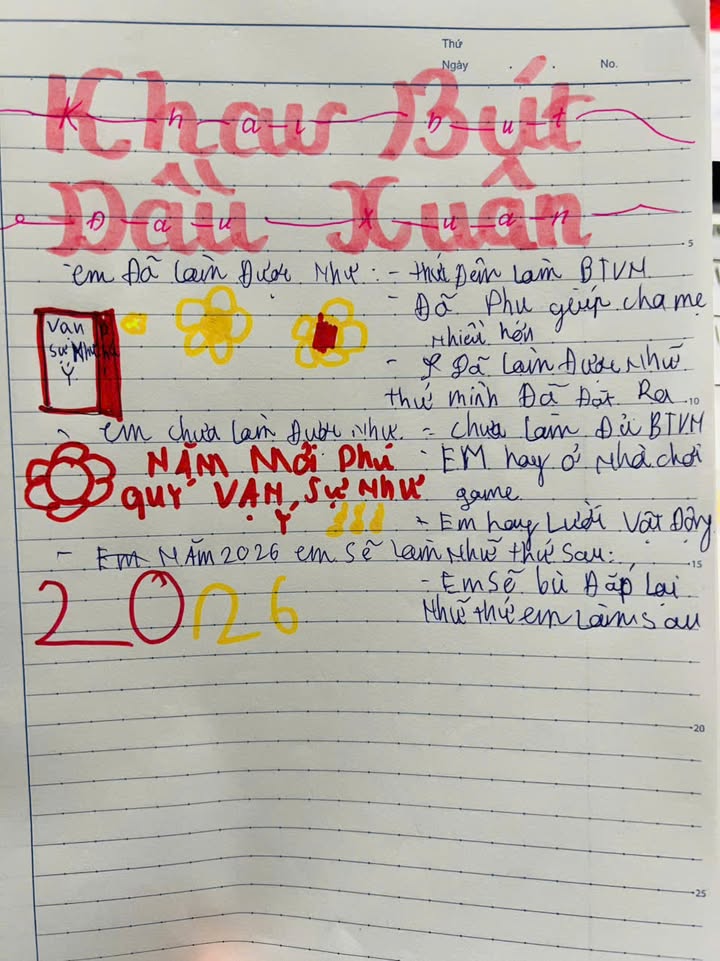 Thứ
Ngày . . No.
Khai Bút
K h a i b u t
Đầu Xuân
Đ a u x u a n
em Đã làm Được Như : - thứ Đến làm BTVN
- Đã Phụ giúp cha mẹ
nhiều hơn
Vạn
sự Như
Ý
- Đã làm Được Như
thứ mình Đã Đặt Ra
- em chưa làm Được Như = chưa làm Đủ BTVN
NĂM MỚI Phú
QUÝ VẠN SỰ NHƯ
Ý
- EM hay ở nhà chơi
game
- Em hay Lười Vật Động
- Em NĂM 2026 em sẽ làm Như thứ sau:
2026
- Em Sẽ bù Đắp lại
Như thứ em làm sau
5
10
15
20
25